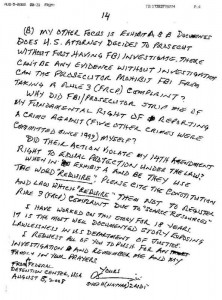 14
(B) MY OTHER FOCUS IS EXHIBIT A & B DOCUMENTS
DOES U.S. ATTORNEY DECIDES TO PROSECUT
WITHOUT FIRST HAVING FBI INVESTIGATE. THERE
CAN'T BE ANY EVIDENCE WITHOUT INVESTIGATION
CAN THE PROSECUTOR PROHIBIT FBI FROM
TAKING A RULE 3 (FRCP) COMPLAINT?
WHY DID FBI/PROSECUTOR STRIP ME OF
MY FUNDAMENTAL RIGHT OF REPORTING
A CRIME (FIVE OTHER CRIMES WERE
COMMITTED SINCE 1991) MYERS?
DID THEIR ACTION VIOLATE MY 14TH AMENDMENTS
RIGHT TO EQUAL PROTECTION UNDER THE LAW?
WHEN IN EXHIBIT A AND B THEY USE
THE WORD "REQUIRE". PLEASE CITE THE CONSTITUTION
AND LAW WHICH "REQUIRE" THEM NOT TO REGISTER
RULE 3 (FRCP) COMPLAINT DUE TO "SCARCE RESOURCES"
I HAVE WORKED ON THIS STORY FOR 18 YEARS
IT IS THE MOST WELL DOCUMENTED STORY EXPOSING
LAWLESSNESS IN U.S DEPARTMENT OF JUSTICE.
I REQUEST ALL OF YOU TO PUSH FOR
INVESTIGATION AND REMEMBER ME AND MY
FAMILY IN YOUR PRAYERS
FROM FEDERAL
YOURS
DETENTION CENTER, USA
AUGUST 5, 2008